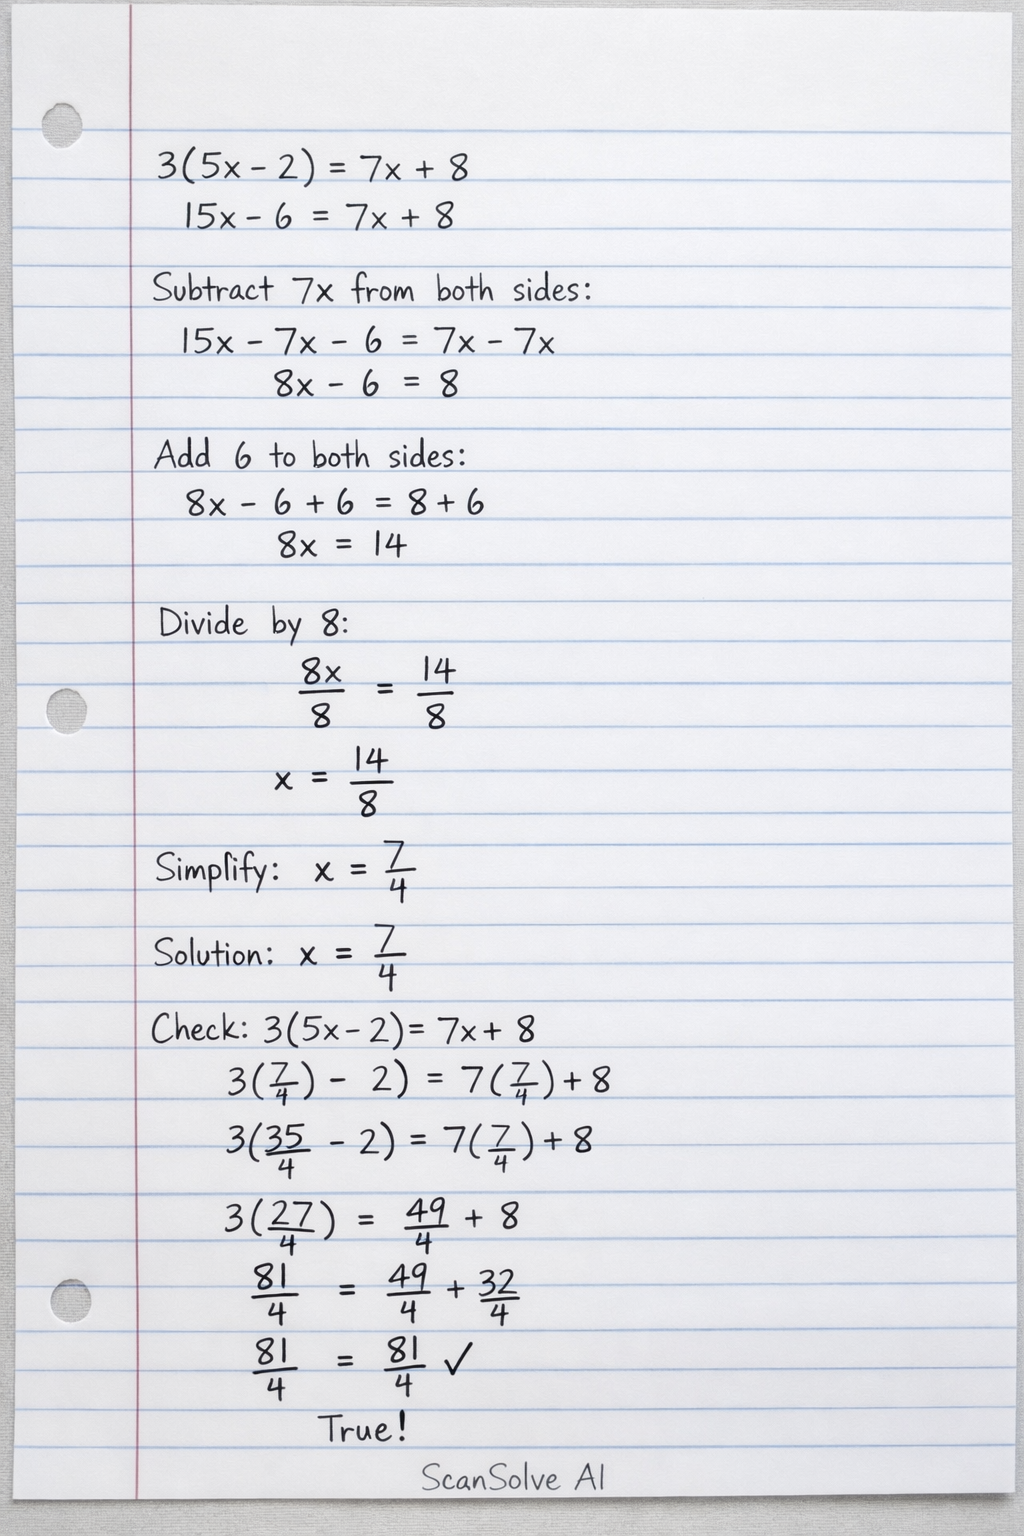 3(5x - 2) = 7x + 8
15x - 6 = 7x + 8
Subtract 7x from both sides:
15x - 7x - 6 = 7x - 7x
8x - 6 = 8
Add 6 to both sides:
8x - 6 + 6 = 8 + 6
8x = 14
Divide by 8:
8x/8 = 14/8
x = 14/8
Simplify: x = 7/4
Solution: x = 7/4
Check: 3(5x - 2) = 7x + 8
3(7/4) - 2) = 7(7/4) + 8
3(35/4 - 2) = 7(7/4) + 8
3(27/4) = 49/4 + 8
81/4 = 49/4 + 32/4
81/4 = 81/4 ✓
True!
ScanSolve AI